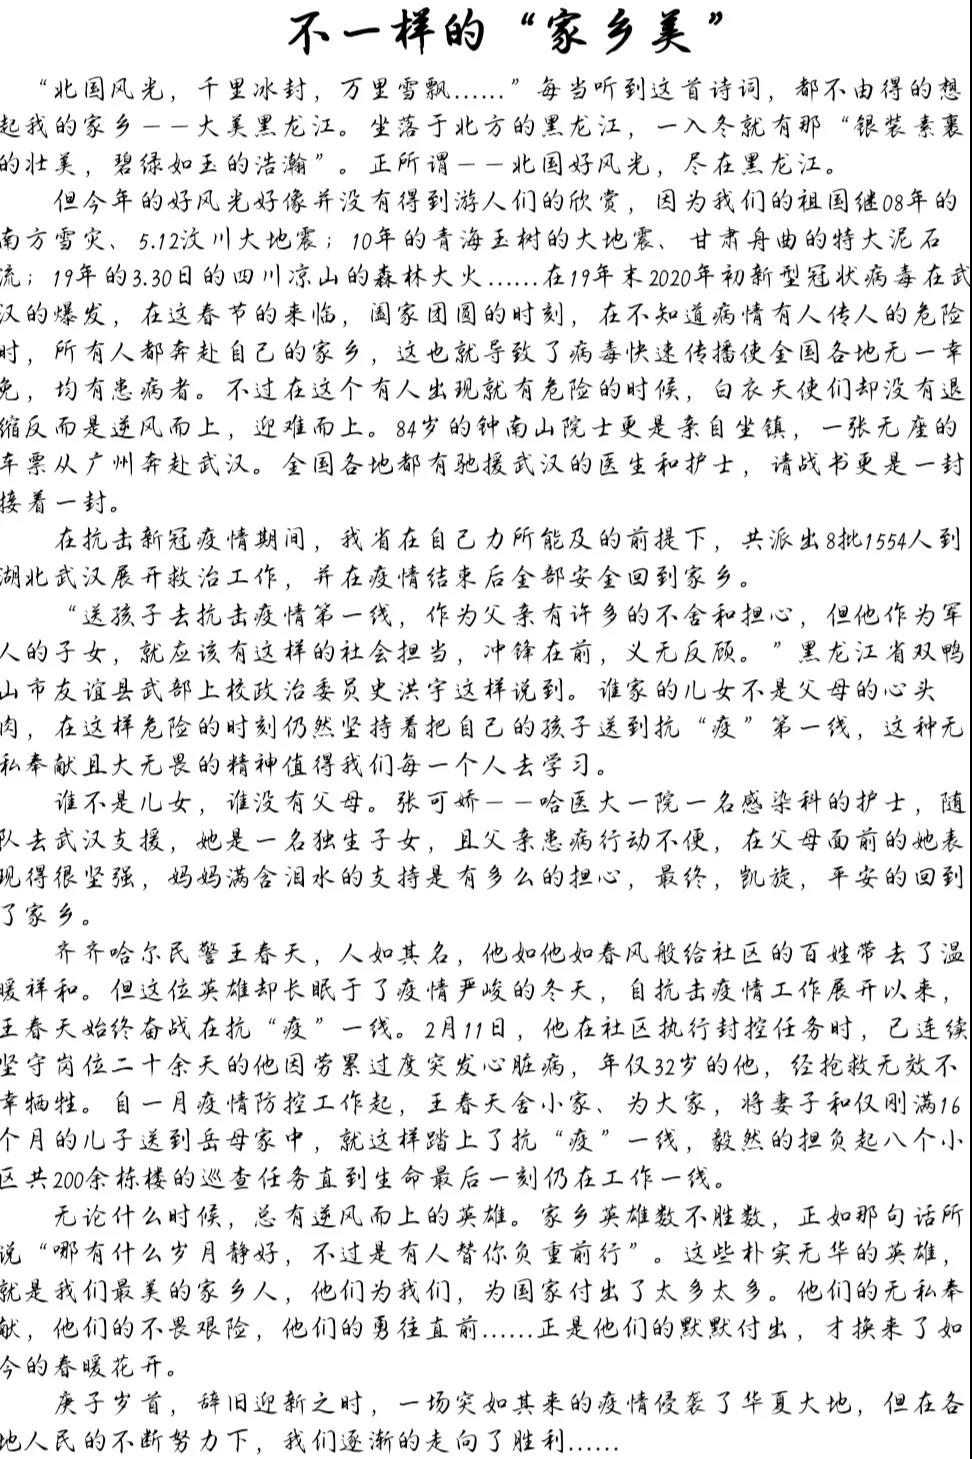 不一样的“家乡美”
“北国风光，千里冰封，万里雪飘……”每当听到这首诗词，都不由得的想
起我的家乡——大美黑龙江。坐落于北方的黑龙江，一入冬就有那“银装素裹
的壮美，碧绿如玉的浩瀚”。正所谓——北国好风光，尽在黑龙江。
但今年的好风光好像并没有得到游人们的欣赏，因为我们的祖国继08年的
南方雪灾、5.12汶川大地震；10年的青海玉树的大地震、甘肃舟曲的特大泥石
流；19年的3.30日的四川凉山的森林大火……在19年末2020年初新型冠状病毒在武
汉的爆发，在这春节的来临，阖家团圆的时刻，在不知道病情有人传人的危险
时，所有人都奔赴自己的家乡，这也就导致了病毒快速传播使全国各地无一幸
免，均有患病者。不过在这个有人出现就有危险的时候，白衣天使们却没有退
缩反而是逆风而上，迎难而上。84岁的钟南山院士更是亲自坐镇，一张无座的
车票从广州奔赴武汉。全国各地都有驰援武汉的医生和护士，请战书更是一封
接着一封。
在抗击新冠疫情期间，我省在自己力所能及的前提下，共派出8批1554人到
湖北武汉展开救治工作，并在疫情结束后全部安全回到家乡。
“送孩子去抗击疫情第一线，作为父亲有许多的不舍和担心，但他作为军
人的子女，就应该有这样的社会担当，冲锋在前，义无反顾。”黑龙江省双鸭
山市友谊县武部上校政治委员史洪宇这样说到。谁家的儿女不是父母的心头
肉，在这样危险的时刻仍然坚持着把自己的孩子送到抗“疫”第一线，这种无
私奉献且大无畏的精神值得我们每一个人去学习。
谁不是儿女，谁没有父母。张可娇——哈医大一院一名感染科的护士，随
队去武汉支援，她是一名独生子女，且父亲患病行动不便，在父母面前的她表
现得很坚强，妈妈满含泪水的支持是有多么的担心，最终，凯旋，平安的回到
了家乡。
齐齐哈尔民警王春天，人如其名，他如他如春风般给社区的百姓带去了温
暖祥和。但这位英雄却长眠于了疫情严峻的冬天，自抗击疫情工作展开以来，
王春天始终奋战在抗“疫”一线。2月11日，他在社区执行封控任务时，已连续
坚守岗位二十余天的他因劳累过度突发心脏病，年仅32岁的他，经抢救无效不
幸牺牲。自一月疫情防控工作起，王春天舍小家、为大家，将妻子和仅刚满16
个月的儿子送到岳母家中，就这样踏上了抗“疫”一线，毅然的担负起八个小
区共200余栋楼的巡查任务直到生命最后一刻仍在工作一线。
无论什么时候，总有逆风而上的英雄。家乡英雄数不胜数，正如那句话所
说“哪有什么岁月静好，不过是有人替你负重前行”。这些朴实无华的英雄，
就是我们最美的家乡人，他们为我们，为国家付出了太多太多。他们的无私奉
献，他们的不畏艰险，他们的勇往直前……正是他们的默默付出，才换来了如
今的春暖花开。
庚子岁首，辞旧迎新之时，一场突如其来的疫情侵袭了华夏大地，但在各
地人民的不断努力下，我们逐渐的走向了胜利……